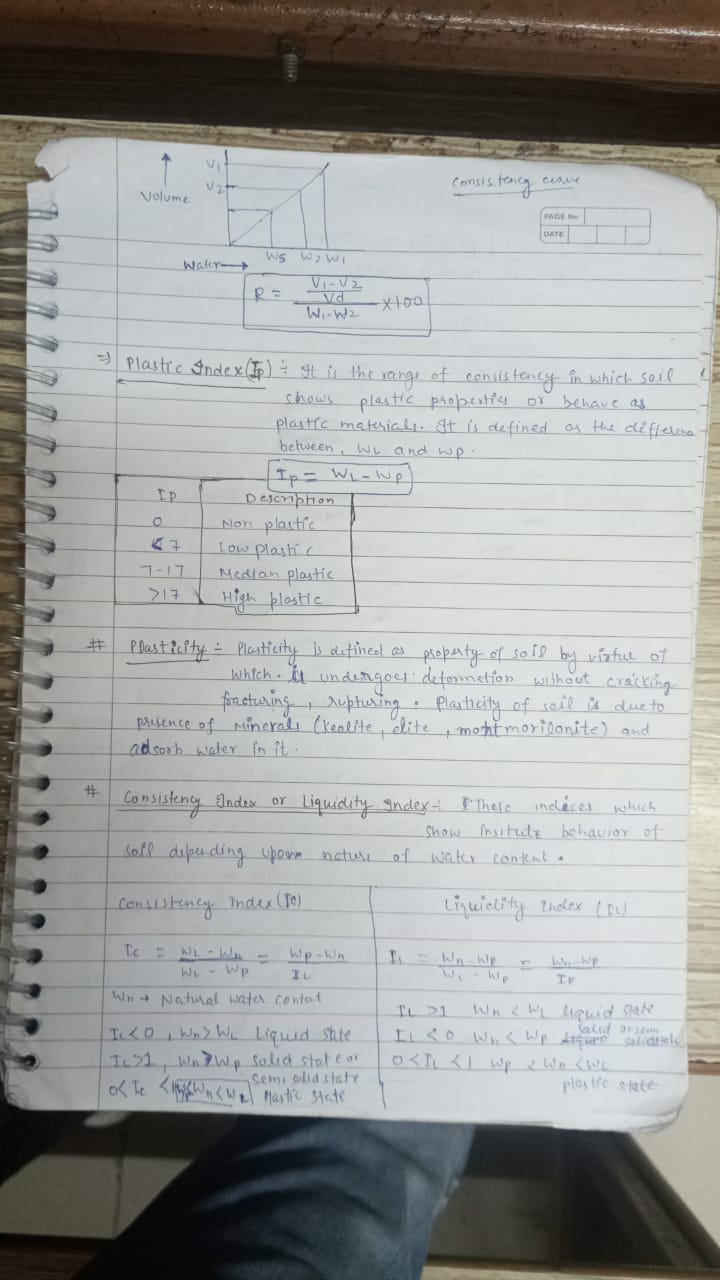 V1
V2
Volume
consistency curve
PAGE No
DATE
Ws W2 W1
Water→
R = (V1-V2 / Vd) / (W1-W2) ×100
⇒ Plastic Index (Ip) ÷ It is the range of consistency in which soil
shows plastic properties or behave as
plastic materials. It is defined as the difference
between, WL and Wp.
Ip = WL - Wp
Ip Description
0 Non plastic
<7 Low plastic
7-17 Median plastic
>17 High plastic
# Plasticity ÷ Plasticity is defined as property of soil by virtue of
which it undergoes deformation without cracking
fracturing, rupturing. Plasticity of soil is due to
presence of Minerals (Keolite, elite, montmorilonite) and
adsorb water in it.
# Consistency Index or Liquidity Index ÷ These indices which
show Insitute behavior of
soil depending upon nature of water content.
Consistency Index (Ic)
Liquidity Index (IL)
Ic = WL - Wn / WL - Wp = Wp - Wn / IL
IL = Wn - Wp / WL - Wp = Wn - Wp / Ip
Wn → Natural water contat
Ic<0, Wn>WL Liquid state
Ic>1, Wn>Wp solid state or
semi solid state
0<Ic<1 Wp<Wn<WL Plastic state
IL >1 Wn < WL liquid state
IL <0 Wn < Wp solid or semi solid state
0<IL<1 Wp < Wn <WL
plastic state